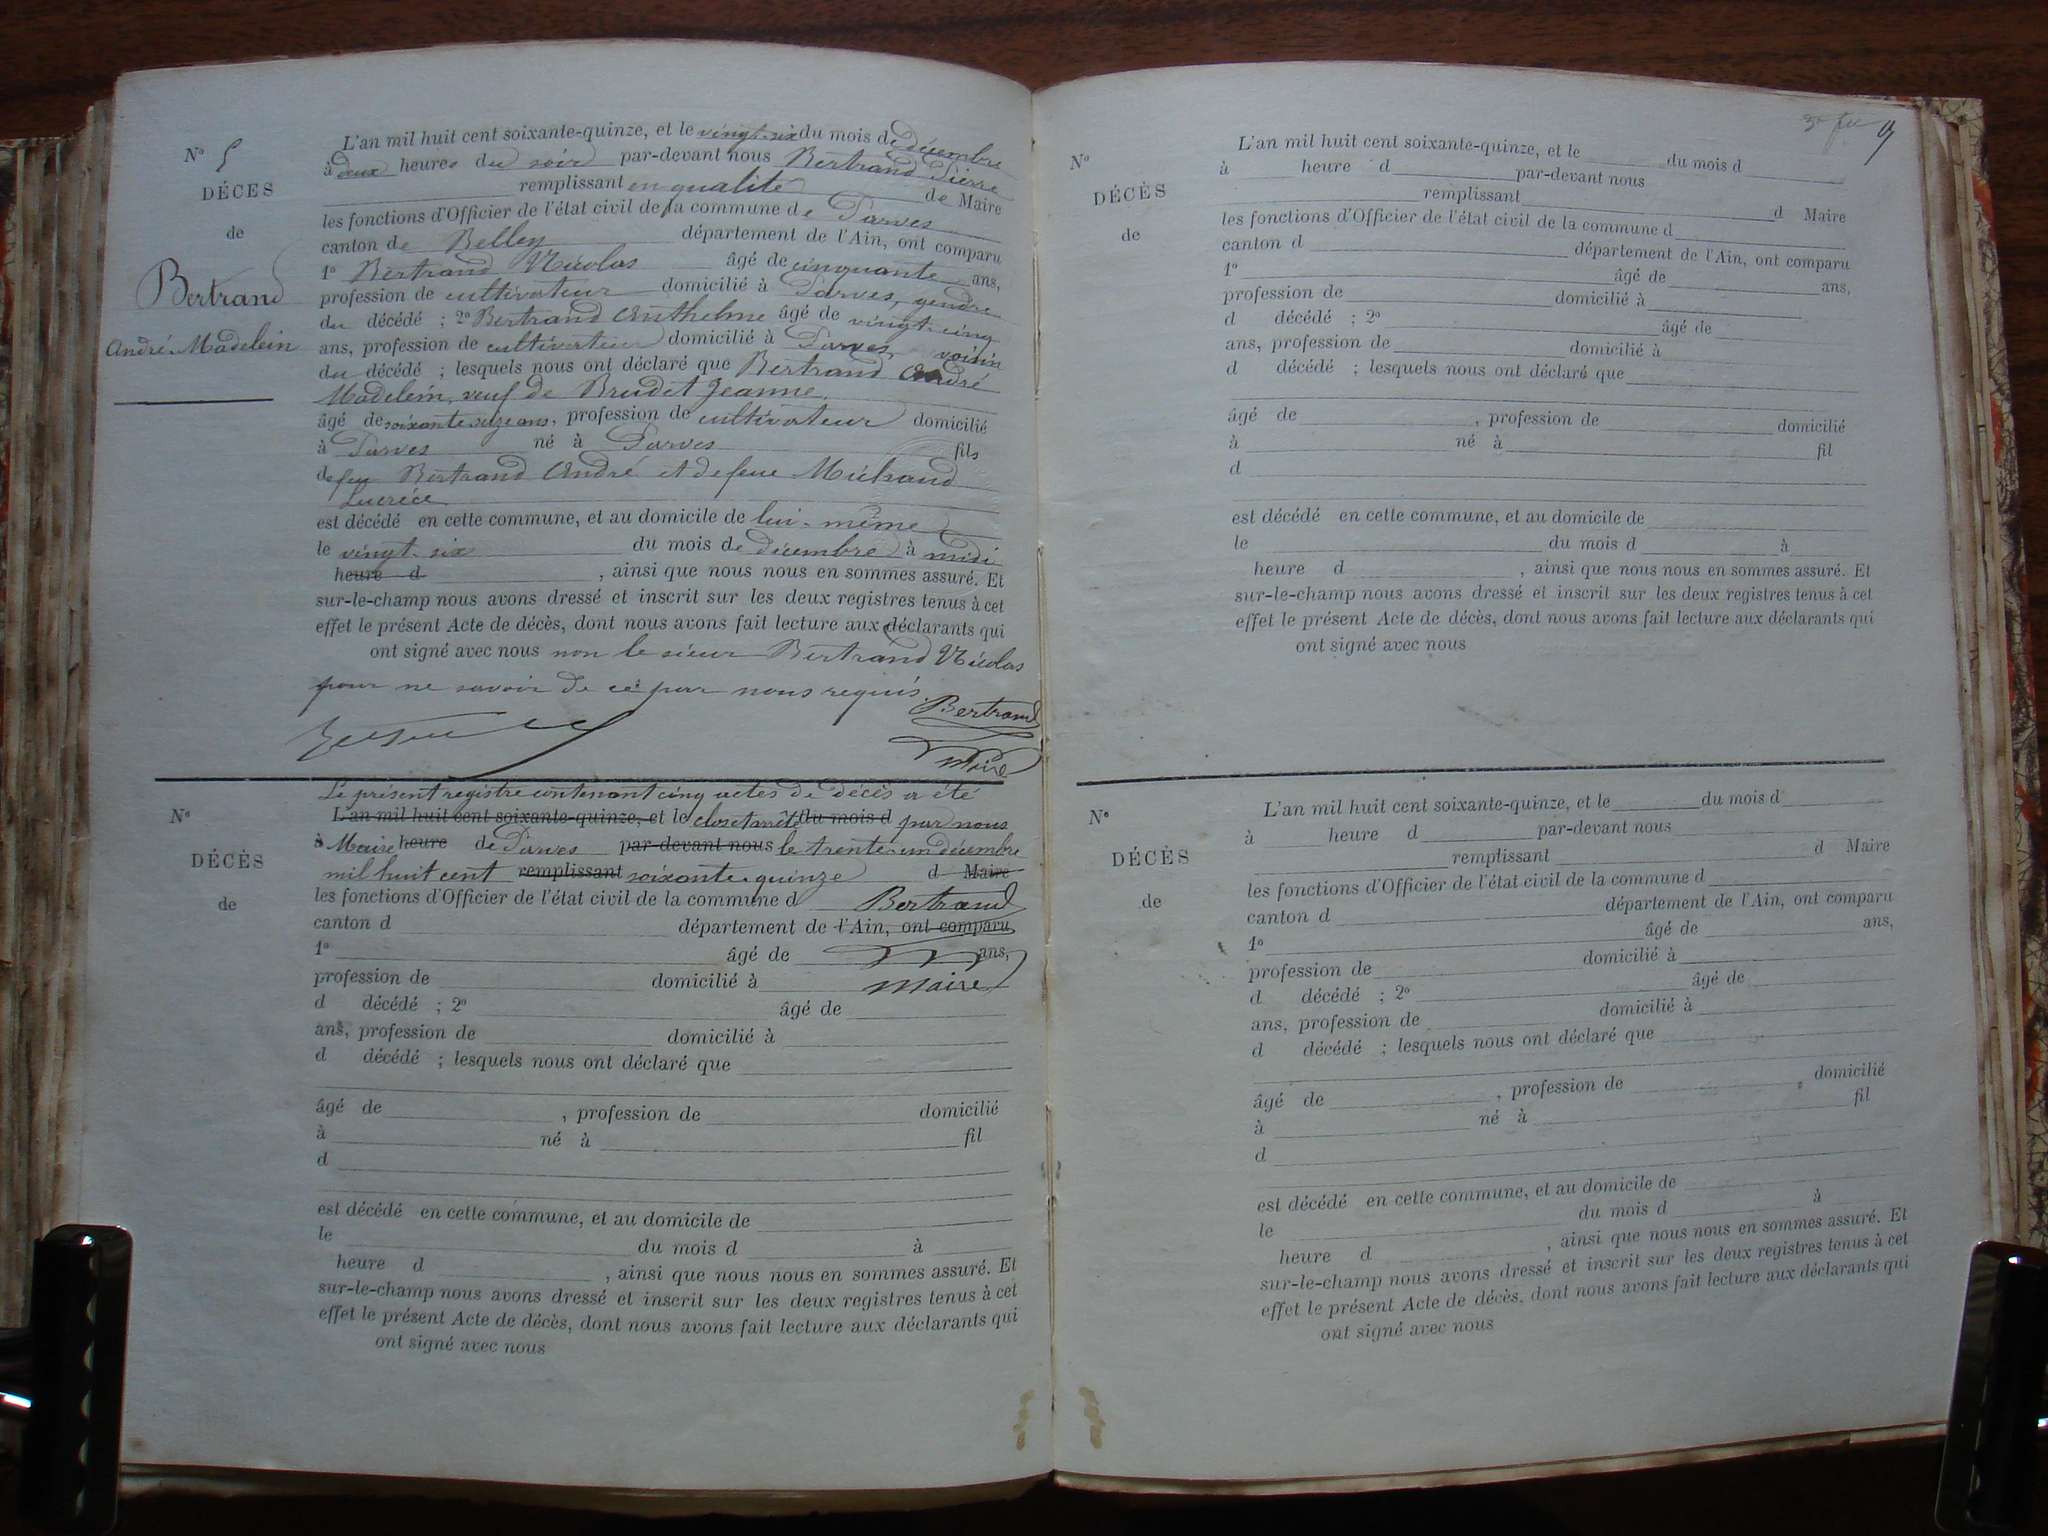 N° 5
DÉCES
de
Bertrand
André Madelein
L'an mil huit cent soixante-quinze, et le vingt-six du mois de décembre
à deux heures du soir par-devant nous Bertrand Pierre
remplissant en qualité de Maire
les fonctions d'Officier de l'état civil de la commune de Parves
canton de Belley département de l'Ain, ont comparu
1° Bertrand Nicolas âgé de cinquante ans,
profession de cultivateur domicilié à Parves, gendre
du décédé ; 2° Bertrand Anthelme âgé de vingt-cinq
ans, profession de cultivateur domicilié à Parves, voisin
du décédé ; lesquels nous ont déclaré que Bertrand André
Madelein, veuf de Brudet Jeanne,
âgé de soixante seize ans, profession de cultivateur domicilié
à Parves né à Parves fils
de feu Bertrand André et de feue Michaud
Lucrèce
est décédé en cette commune, et au domicile de lui-même
le vingt-six du mois de décembre à midi
heure d , ainsi que nous nous en sommes assuré. Et
sur-le-champ nous avons dressé et inscrit sur les deux registres tenus à cet
effet le présent Acte de décès, dont nous avons fait lecture aux déclarants qui
ont signé avec nous non le sieur Bertrand Nicolas
pour ne savoir de ce par nous requis.
Bertrand
Maire
N°
DÉCÈS
de
Le présent registre contenant cinq actes de décès a été
L'an mil huit cent soixante-quinze, et le clos et arrêté du mois d par nous
à Maire heure de Parves par-devant nous le trente-un décembre
mil huit cent remplissant soixante-quinze d Maire
les fonctions d'Officier de l'état civil de la commune d Bertrand
canton d département de l'Ain, ont comparu
1° âgé de ans,
profession de domicilié à Maire
d décédé ; 2° âgé de
ans, profession de domicilié à
d décédé ; lesquels nous ont déclaré que
âgé de , profession de domicilié
à né à fil
d
est décédé en cette commune, et au domicile de
le du mois d à
heure d , ainsi que nous nous en sommes assuré. Et
sur-le-champ nous avons dressé et inscrit sur les deux registres tenus à cet
effet le présent Acte de décès, dont nous avons fait lecture aux déclarants qui
ont signé avec nous
N°
DÉCÈS
de
L'an mil huit cent soixante-quinze, et le du mois d
à heure d par-devant nous
remplissant d Maire
les fonctions d'Officier de l'état civil de la commune d
canton d département de l'Ain, ont comparu
1° âgé de ans,
profession de domicilié à
d décédé ; 2° âgé de
ans, profession de domicilié à
d décédé ; lesquels nous ont déclaré que
âgé de , profession de domicilié
à né à fil
d
est décédé en cette commune, et au domicile de
le du mois d à
heure d , ainsi que nous nous en sommes assuré. Et
sur-le-champ nous avons dressé et inscrit sur les deux registres tenus à cet
effet le présent Acte de décès, dont nous avons fait lecture aux déclarants qui
ont signé avec nous
N°
DÉCÈS
de
L'an mil huit cent soixante-quinze, et le du mois d
à heure d par-devant nous
remplissant d Maire
les fonctions d'Officier de l'état civil de la commune d
canton d département de l'Ain, ont comparu
1° âgé de ans,
profession de domicilié à
d décédé ; 2° âgé de
ans, profession de domicilié à
d décédé ; lesquels nous ont déclaré que
âgé de , profession de domicilié
à né à fil
d
est décédé en cette commune, et au domicile de
le du mois d à
heure d , ainsi que nous nous en sommes assuré. Et
sur-le-champ nous avons dressé et inscrit sur les deux registres tenus à cet
effet le présent Acte de décès, dont nous avons fait lecture aux déclarants qui
ont signé avec nous